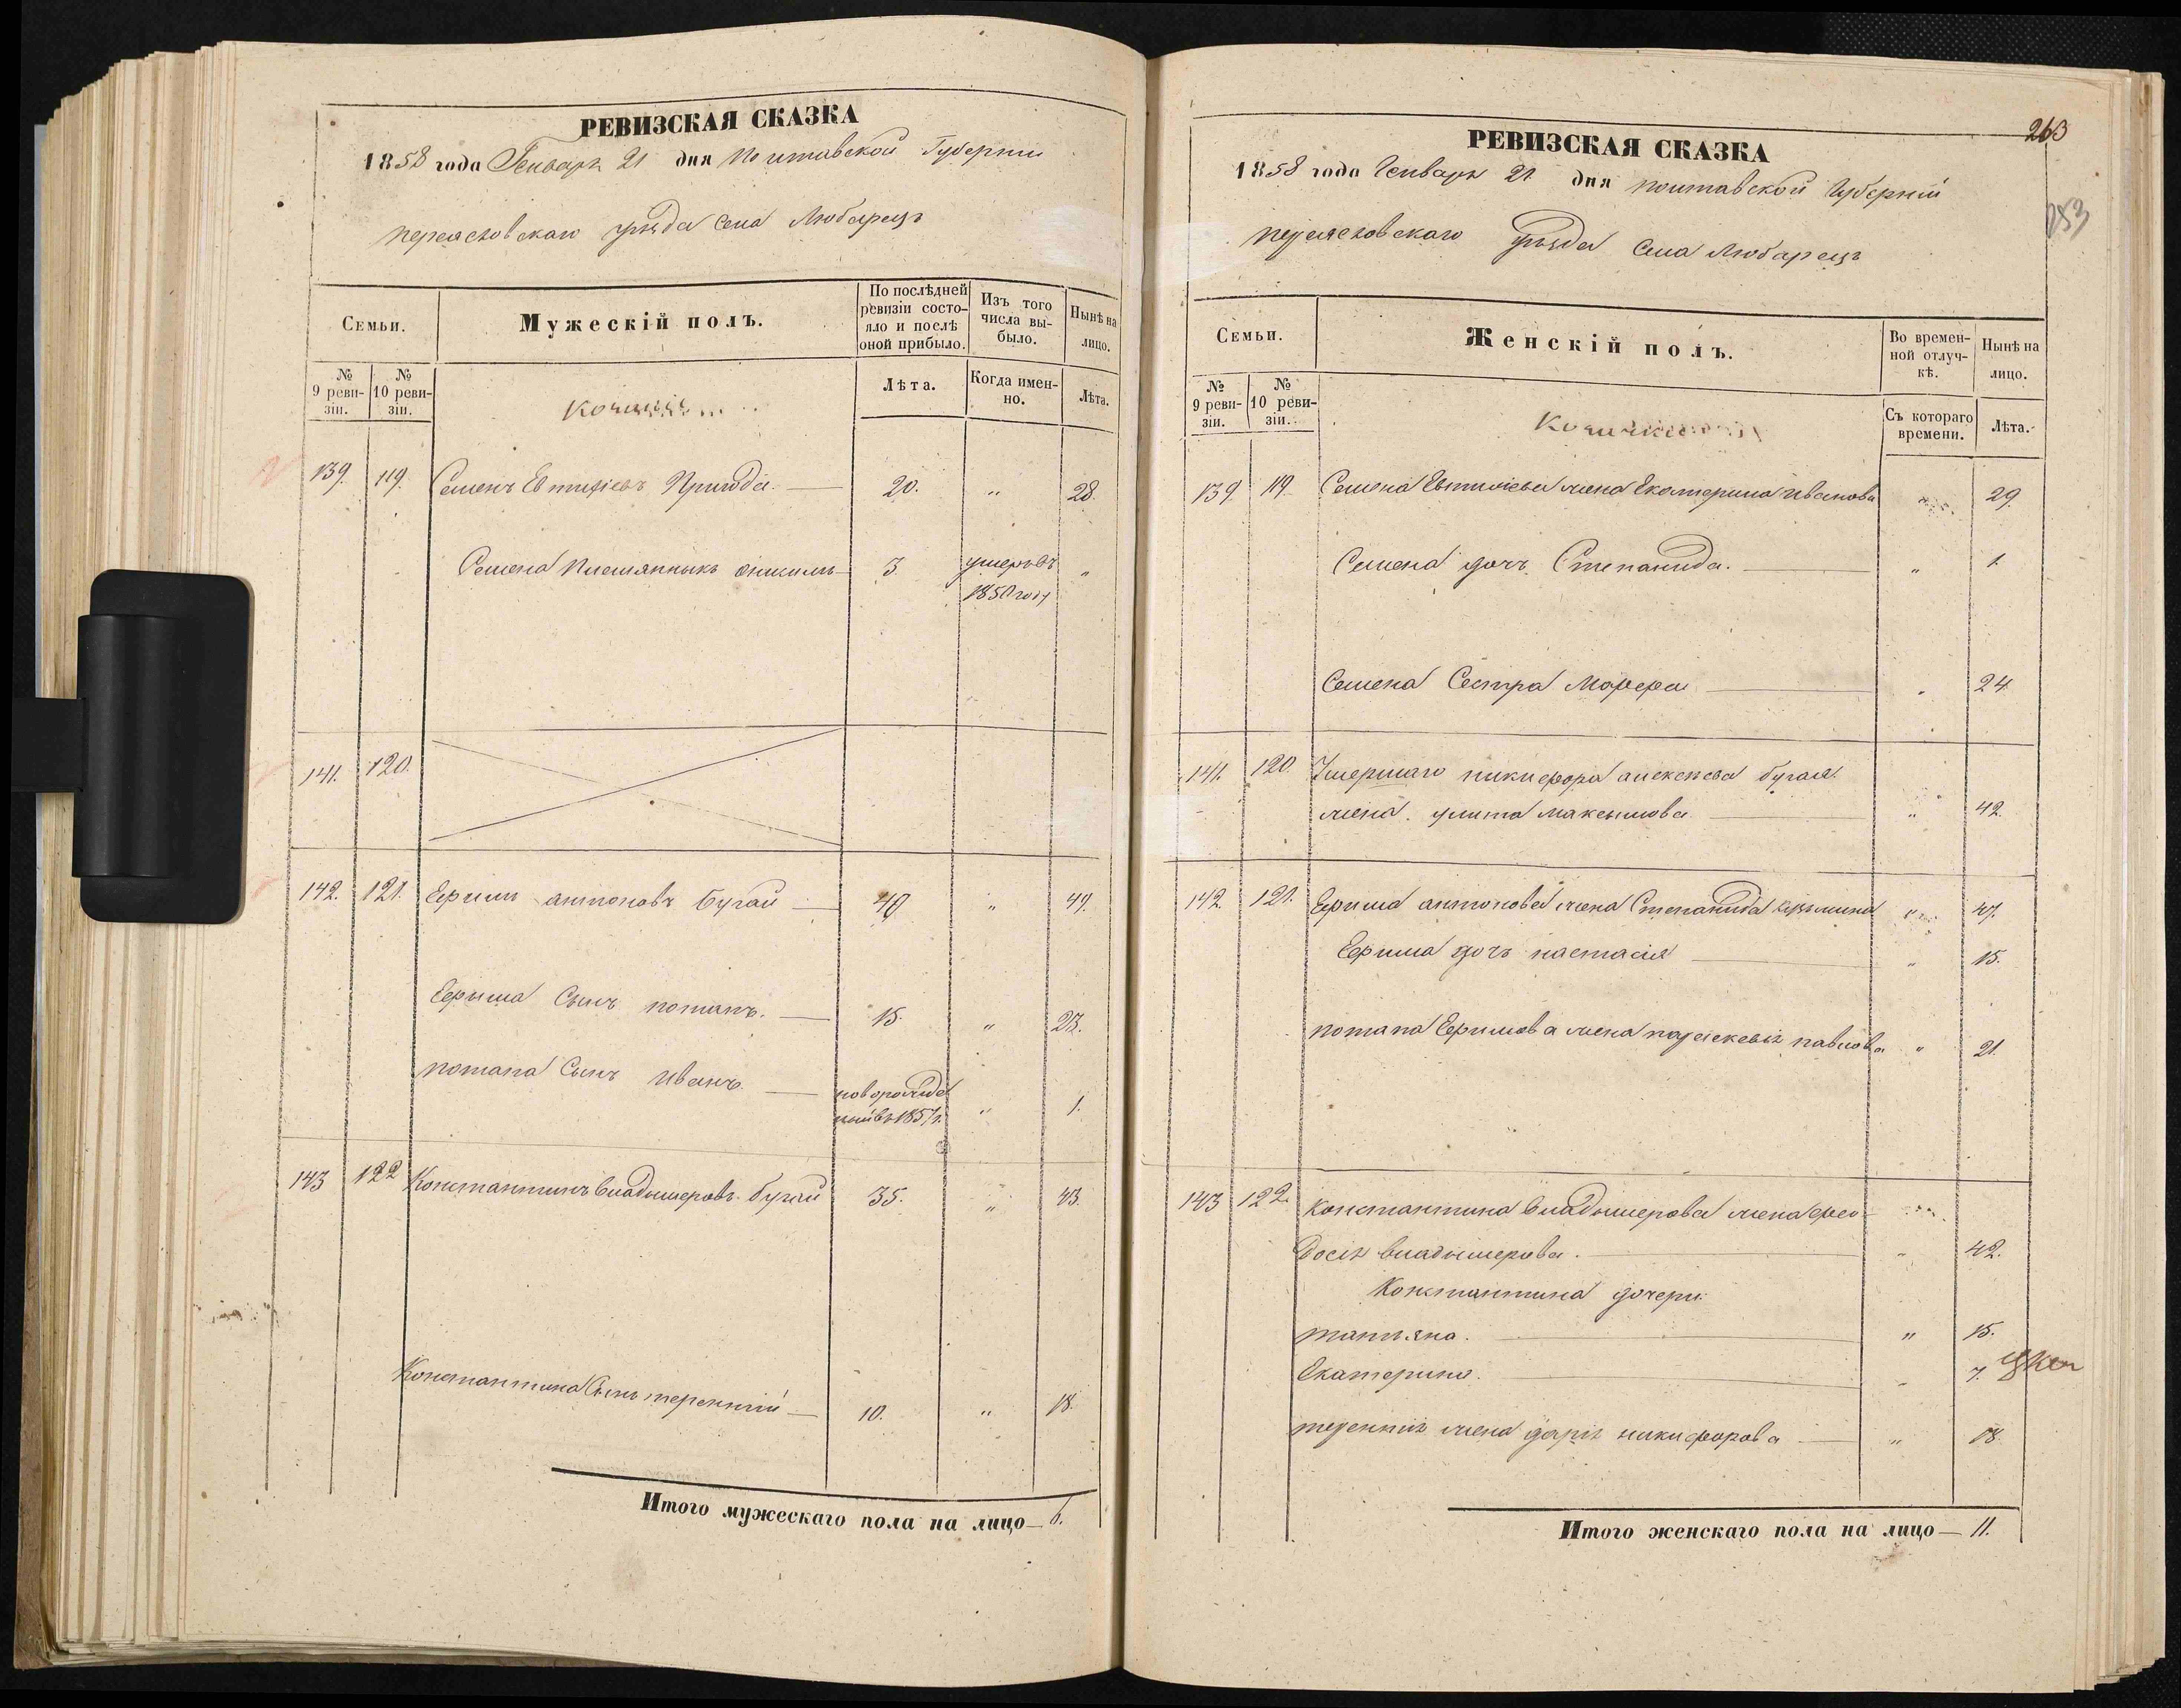 РЕВИЗСКАЯ СКАЗКА
1858 года Генваря 21 дня Полтавской Губернии
переясловскаго уѣзда села Любарецъ
Семьи.
Мужескій полъ.
По послѣдней ревизіи состояло и послѣ оной прибыло.
Изъ того числа выбыло.
Нынѣ на лицо.
№ 9 ревизіи.
№ 10 ревизіи.
Лѣта.
Когда именно.
Лѣта.
139. 119. Семенъ Евтихіевъ Пригода. — 20. " 28.
Семена племянныкъ — 3 умеръ въ "
1850 году
141. 120.
142. 121. Ефимъ антоновъ бугай — 40 " 49.
Ефыма Сынъ потапъ. — 15. " 23.
потапа Сынъ иванъ. — новорожде
ный въ 1857 г. " 1.
143 122 Константинъ владымеровъ бугай 35. " 43.
Константина Сынъ терентий — 10. " 18.
Итого мужескаго пола на лицо — 6.
263
253
РЕВИЗСКАЯ СКАЗКА
1858 года Генваря 21 дня полтавской Губерній
переясловскаго уѣзда села Любарецъ
Семьи.
Женскій полъ.
Во временной отлучкѣ.
Нынѣ на лицо.
№ 9 ревизіи.
№ 10 ревизіи.
Съ котораго времени.
Лѣта.
139 119 Семена Евтихіева жена Екатерина иванова " 29.
Семена дочь Степанида. — " 1.
Семена Сестра Марфа — " 24.
141. 120. Умершаго никифора алексѣева бугая
жена. улита максымова — " 42.
142. 121. Ефима антонова жена Степанида " 47.
Ефима дочь настасія — " 15.
потапа Ефимова жена параскевія павлова " 21.
143 122. константина владымерова жена фео
досія владымерова. — " 42.
Константина дочери
татьяна. — " 15.
Екатерина. — " 7.
терентія жена дарія никифорова — " 18.
Итого женскаго пола на лицо — 11.